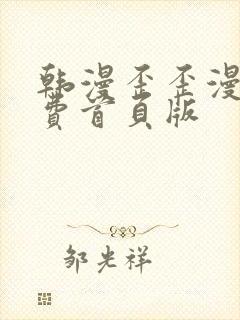 韩漫歪歪漫
费首页版
邹光祥